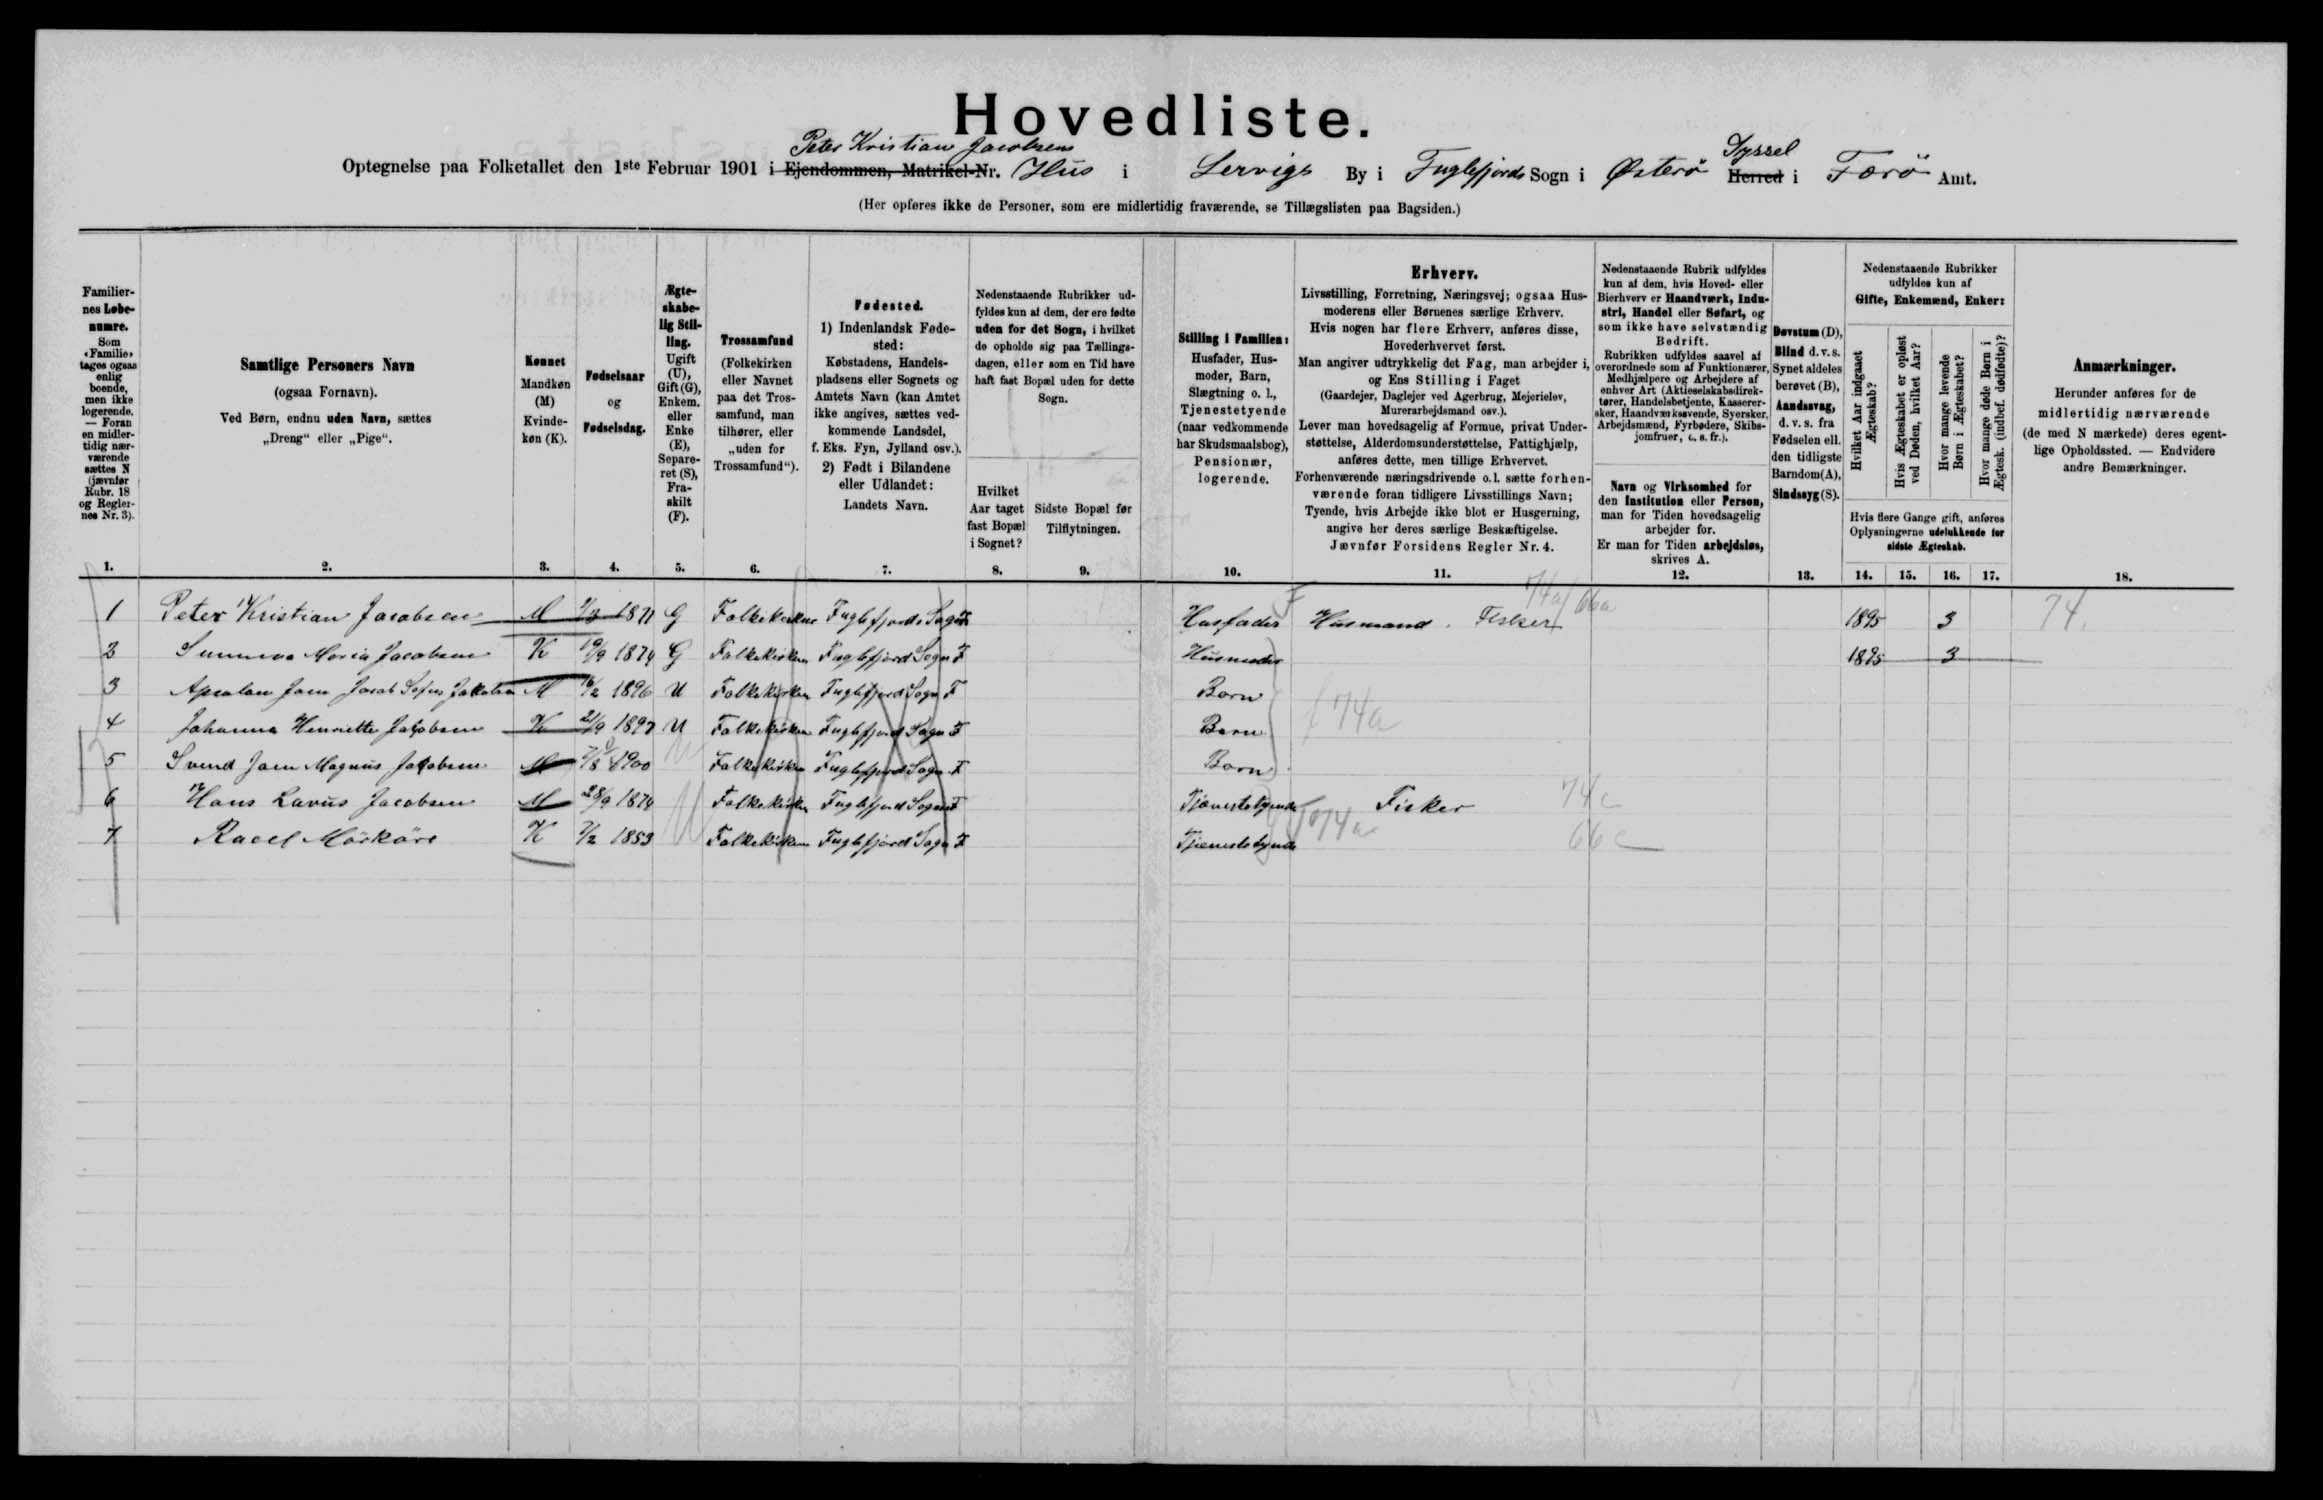 Hovedliste.
Peter Kristian Jacobsens Syssel
Optegnelse paa Folketallet den 1ste Februar 1901 i Ejendommen, Matrikel-Nr. Hus i Lervigs By i Fuglefjords Sogn i Österö Herred i Færö Amt.
(Her opføres ikke de Personer, som ere midlertidig fraværende, se Tillægslisten paa Bagsiden.)
Familier-
nes Løbe-
numre.
Som
«Familie»
tages ogsaa
enlig
boende,
men ikke
logerende.
— Foran
en midler-
tidig nær-
værende
sættes N
(jævnfør
Rubr. 18
og Regler-
nes Nr. 3).
1.
Samtlige Personers Navn
(ogsaa Fornavn).
Ved Børn, endnu uden Navn, sættes
„Dreng“ eller „Pige“.
2.
Kønnet
Mandkøn
(M)
Kvinde-
køn (K).
3.
Fødselsaar
og
Fødselsdag.
4.
Ægte-
skabe-
lig Stil-
ling.
Ugift
(U),
Gift (G),
Enkem.
eller
Enke
(E),
Separe-
ret (S),
Fra-
skilt
(F).
5.
Trossamfund
(Folkekirken
eller Navnet
paa det Tros-
samfund, man
tilhører, eller
„uden for
Trossamfund“).
6.
Fødested.
1) Indenlandsk Føde-
sted:
Købstadens, Handels-
pladsens eller Sognets og
Amtets Navn (kan Amtet
ikke angives, sættes ved-
kommende Landsdel,
f. Eks. Fyn, Jylland osv.).
2) Født i Bilandene
eller Udlandet:
Landets Navn.
7.
Nedenstaaende Rubrikker ud-
fyldes kun af dem, der ere fødte
uden for det Sogn, i hvilket
de opholde sig paa Tællings-
dagen, eller som en Tid have
haft fast Bopæl uden for dette
Sogn.
Hvilket
Aar taget
fast Bopæl
i Sognet?
8.
Sidste Bopæl før
Tilflytningen.
9.
Stilling i Familien:
Husfader, Hus-
moder, Barn,
Slægtning o. l.,
Tjenestetyende
(naar vedkommende
har Skudsmaalsbog),
Pensionær,
logerende.
10.
Erhverv.
Livsstilling, Forretning, Næringsvej; ogsaa Hus-
moderens eller Børnenes særlige Erhverv.
Hvis nogen har flere Erhverv, anføres disse,
Hovederhvervet først.
Man angiver udtrykkelig det Fag, man arbejder i,
og Ens Stilling i Faget
(Gaardejer, Daglejer ved Agerbrug, Mejerielev,
Murerarbejdsmand osv.).
Lever man hovedsagelig af Formue, privat Under-
støttelse, Alderdomsunderstøttelse, Fattighjælp,
anføres dette, men tillige Erhvervet.
Forhenværende næringsdrivende o. l. sætte forhen-
værende foran tidligere Livsstillings Navn;
Tyende, hvis Arbejde ikke blot er Husgerning,
angive her deres særlige Beskæftigelse.
Jævnfør Forsidens Regler Nr. 4.
11.
Nedenstaaende Rubrik udfyldes
kun af dem, hvis Hoved- eller
Bierhverv er Haandværk, Indu-
stri, Handel eller Søfart, og
som ikke have selvstændig
Bedrift.
Rubrikken udfyldes saavel af
overordnede som af Funktionærer,
Medhjælpere og Arbejdere af
enhver Art (Aktieselskabsdirek-
tører, Handelsbetjente, Kasserer-
sker, Haandværkssvende, Syersker,
Arbejdsmænd, Fyrbødere, Skibs-
jomfruer, o. s. fr.).
Navn og Virksomhed for
den Institution eller Person,
man for Tiden hovedsagelig
arbejder for.
Er man for Tiden arbejdsløs,
skrives A.
12.
Døvstum (D),
Blind d. v. s.
Synet aldeles
berøvet (B),
Aandssvag,
d. v. s. fra
Fødselen ell.
den tidligste
Barndom (A),
Sindssyg (S).
13.
Nedenstaaende Rubrikker
udfyldes kun af
Gifte, Enkemænd, Enker:
Hvilket Aar indgaaet
Ægteskab?
Hvis Ægteskabet er opløst
ved Døden, hvilket Aar?
Hvor mange levende
Børn i Ægteskabet?
Hvor mange døde Børn i
Ægtesk. (indbef. dødfødte)?
Hvis flere Gange gift, anføres
Oplysningerne udelukkende for
sidste Ægteskab.
14. 15. 16. 17.
Anmærkninger.
Herunder anføres for de
midlertidig nærværende
(de med N mærkede) deres egent-
lige Opholdssted. — Endvidere
andre Bemærkninger.
18.
1 Peter Kristian Jacobsen M 1871 G Folkekirken Fuglefjords Sogn F Husfader Husmand. Fisker 74a/66a 1895 3 74.
2 Sunneva Maria Jacobsen K 19/9 1874 G Folkekirken Fuglefjord Sogn F Husmoder 1895 3
3 Apsalon Joen Jacob Sofus Jakobsen M 16/2 1896 U Folkekirken Fuglefjord Sogn F Barn
4 Johanna Henriette Jacobsen K 21/9 1897 U Folkekirken Fuglefjord Sogn F Barn 74a
5 Svend Joen Magnus Jacobsen M 7/8 1900 U Folkekirken Fuglefjord Sogn F Barn
6 Hans Lavus Jacobsen M 28/9 1874 U Folkekirken Fuglefjord Sogn F Tjenestetyende Fisker 74c
7 Racel Mörköre K 2/2 1853 U Folkekirken Fuglefjord Sogn F Tjenestetyende 74a 66c